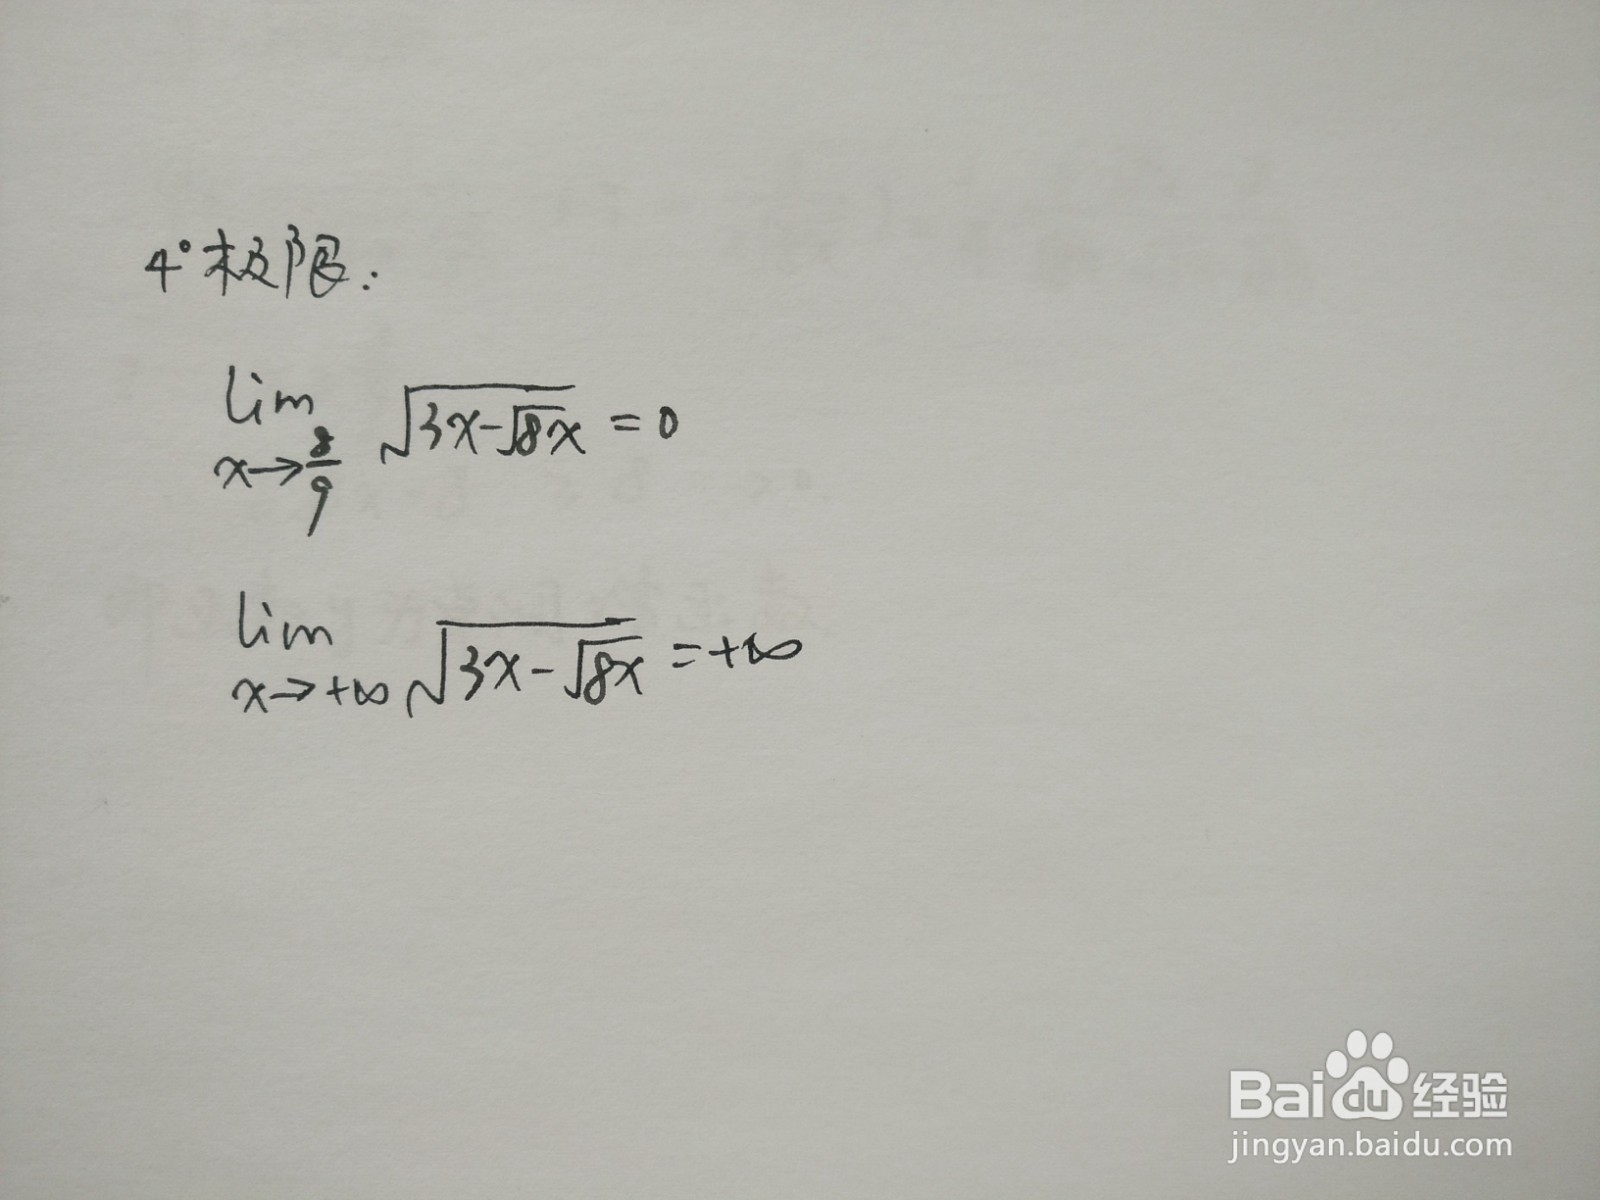 4°极限:
lim x→8/9 √(3x-√8x) = 0
lim x→+∞ √(3x-√8x) = +∞
Baidu经验
jingyan.baidu.com